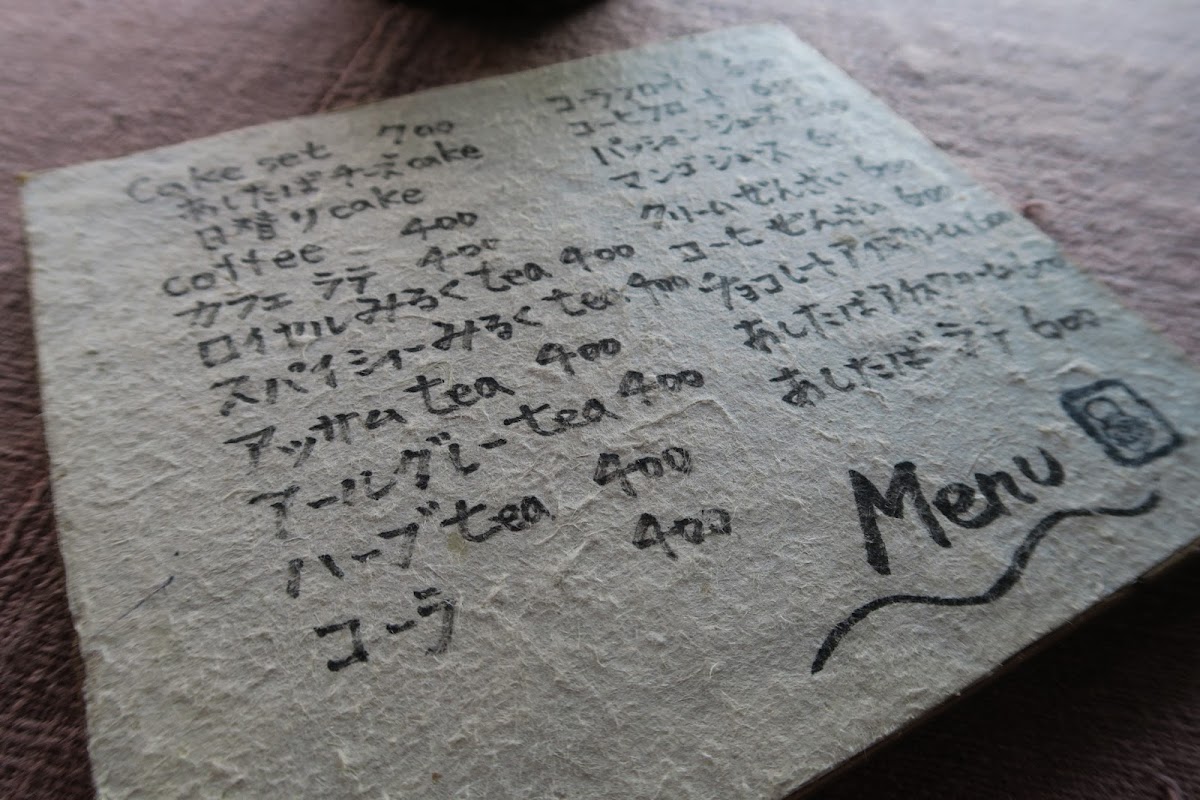 Cake set 700
あしたばチーズcake
日替りcake
coffee 400
カフェ ラテ 400
ロイヤルみるくtea 400
スパイシーみるくtea 400
アッサムtea 400
アールグレーtea 400
ハーブtea 400
コーラ 400
コーラフロート
コーヒフロート 600
パッションジュース
マンゴジュース
クリームぜんざい 600
コーヒぜんざい 600
チョコレートアイスクリーム 600
あしたばアイスクリーム
あしたばラテ 600
Menu